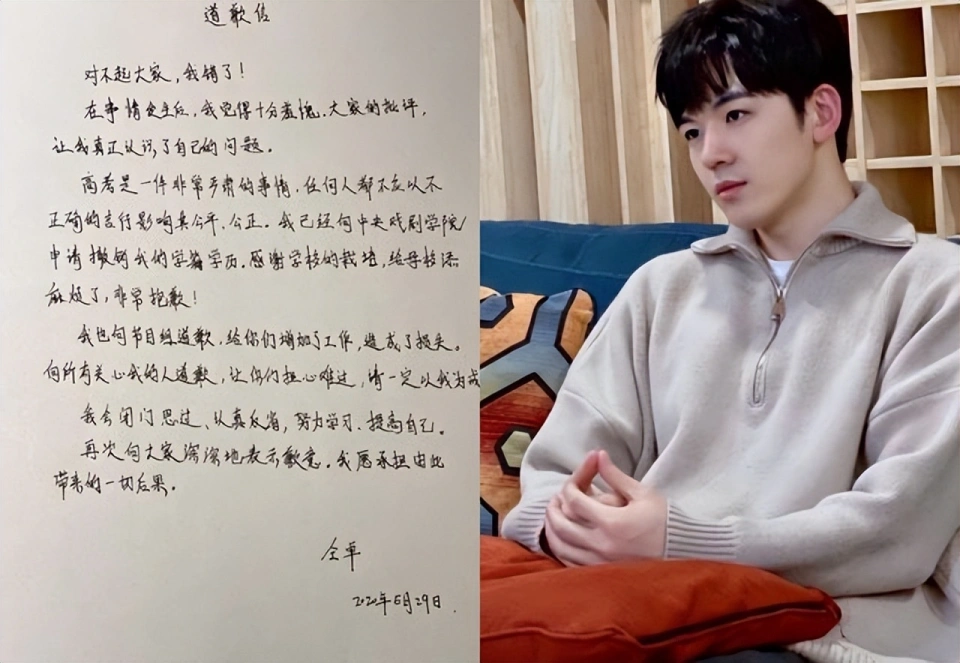 道歉信
对不起大家，我错了！
在事情发生后，我觉得十分羞愧。大家的批评，
让我真正认识了自己的问题。
高考是一件非常严肃的事情，任何人都不应以不
正确的言行影响其公平、公正。我已经向中央戏剧学院
申请撤销我的学籍学历。感谢学校的栽培，给母校添
麻烦了，非常抱歉！
我也向节目组道歉，给你们增加了工作，造成了损失。
向所有关心我的人道歉，让你们担心难过，请一定以我为戒
我会闭门思过、认真反省，努力学习、提高自己。
再次向大家深深地表示歉意。我愿承担由此
带来的一切后果。
仝卓
2020年5月29日.